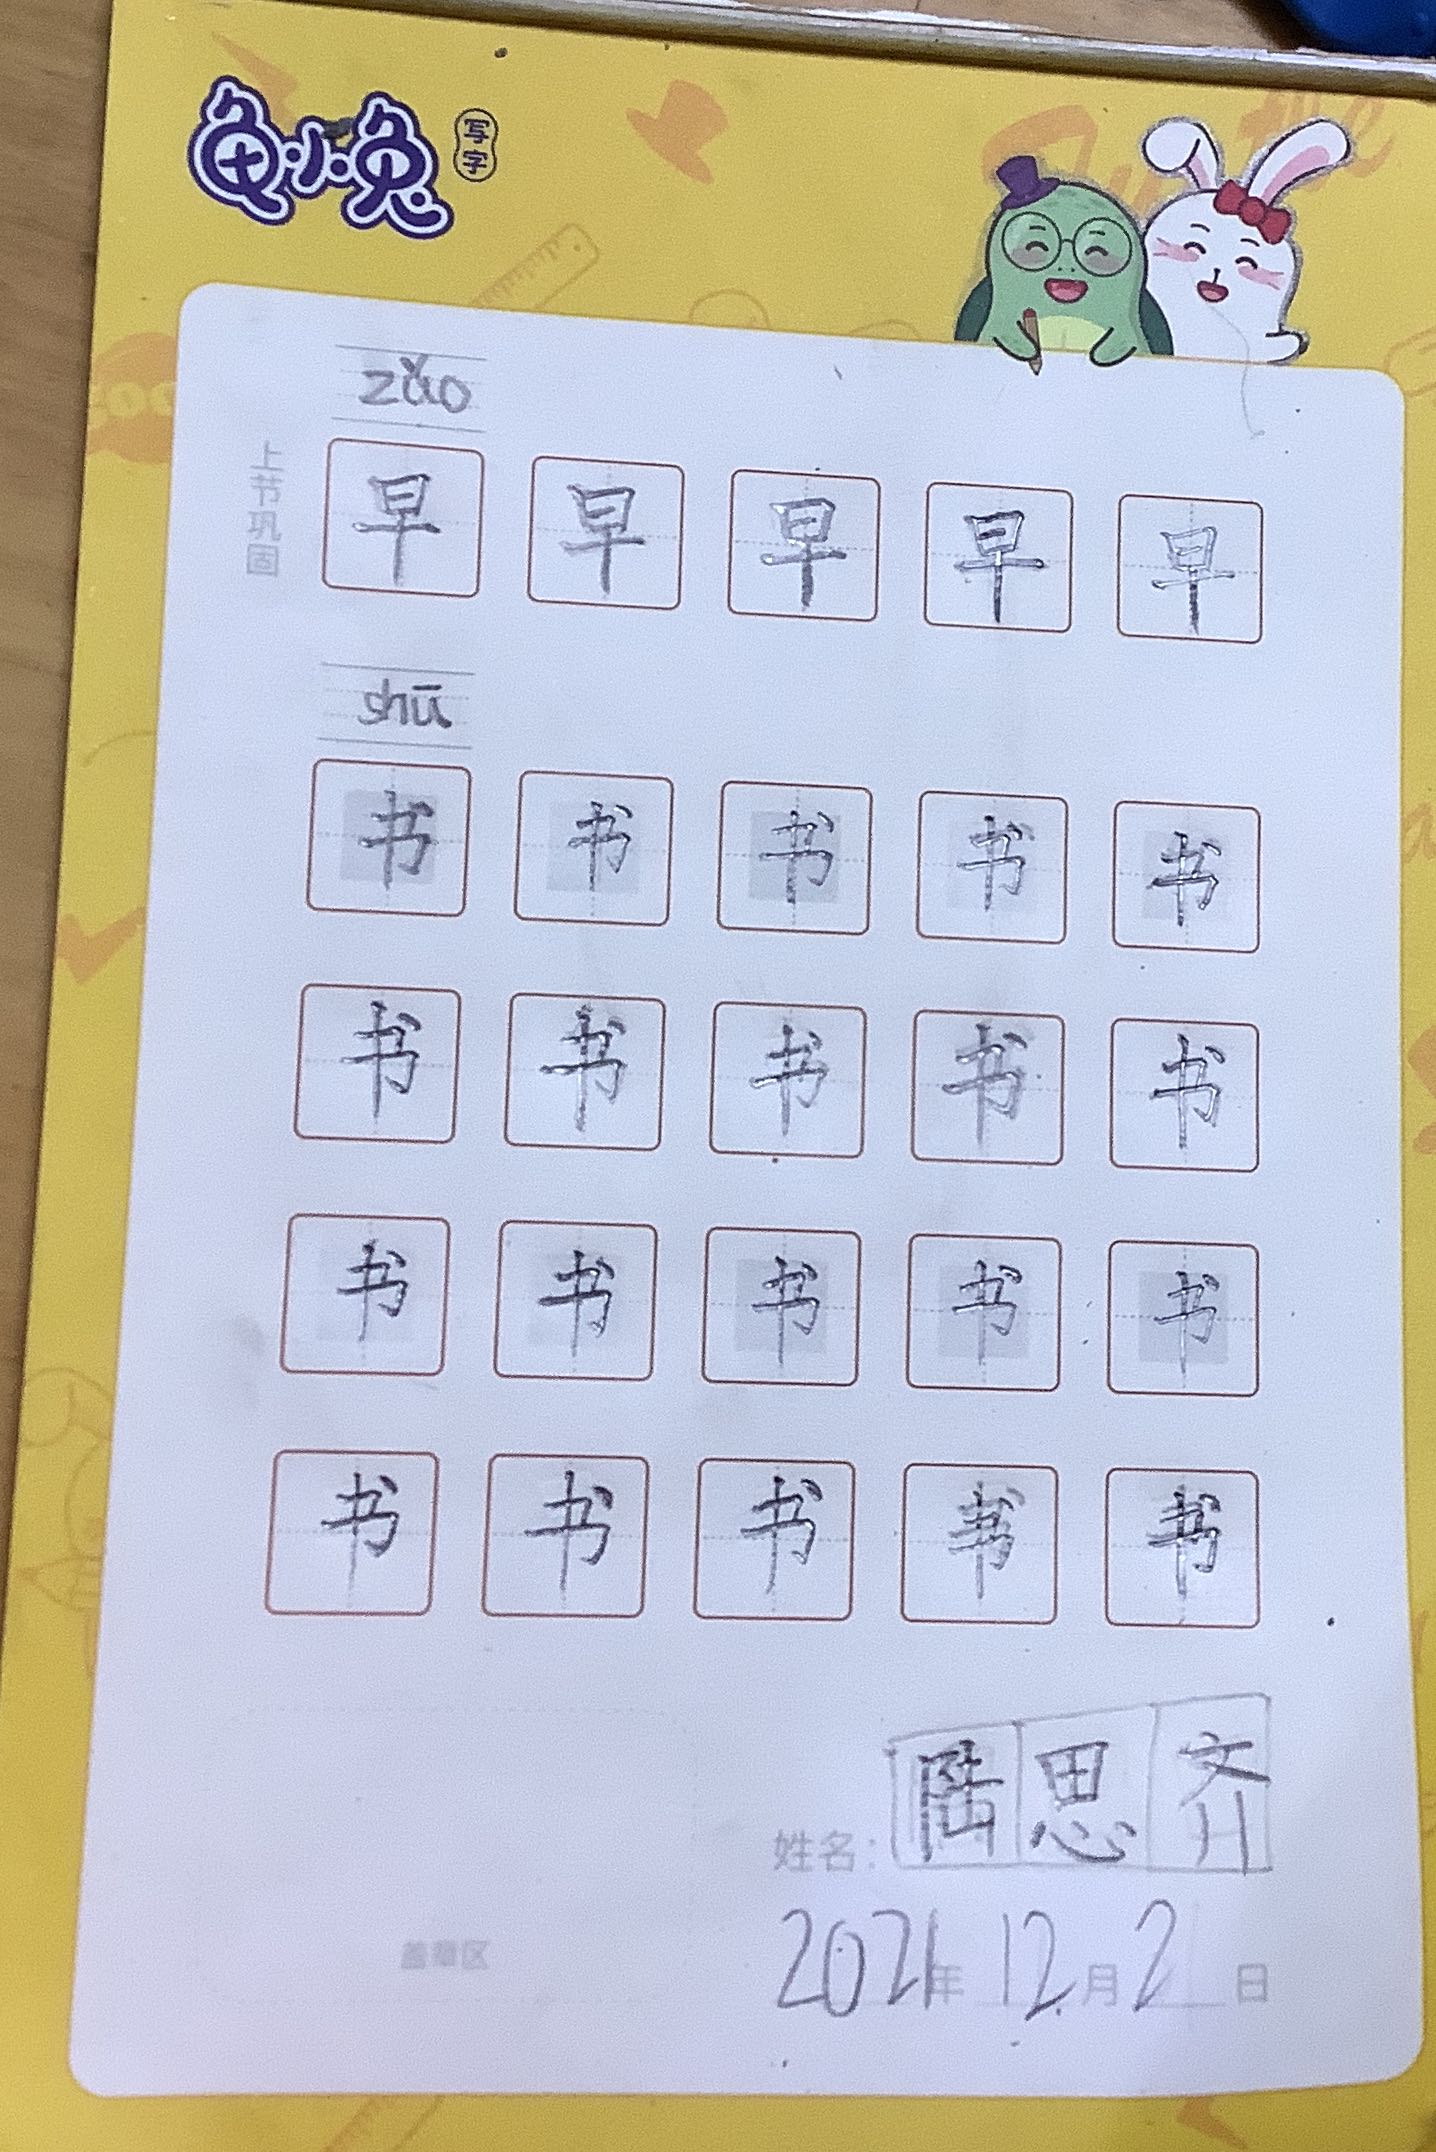 龟小兔 写字
zǎo
上节巩固
早 早 早 早 早
shū
书 书 书 书 书
书 书 书 书 书
书 书 书 书 书
书 书 书 书 书
姓名: 陆思齐
盖章区
2021年 12月 2日